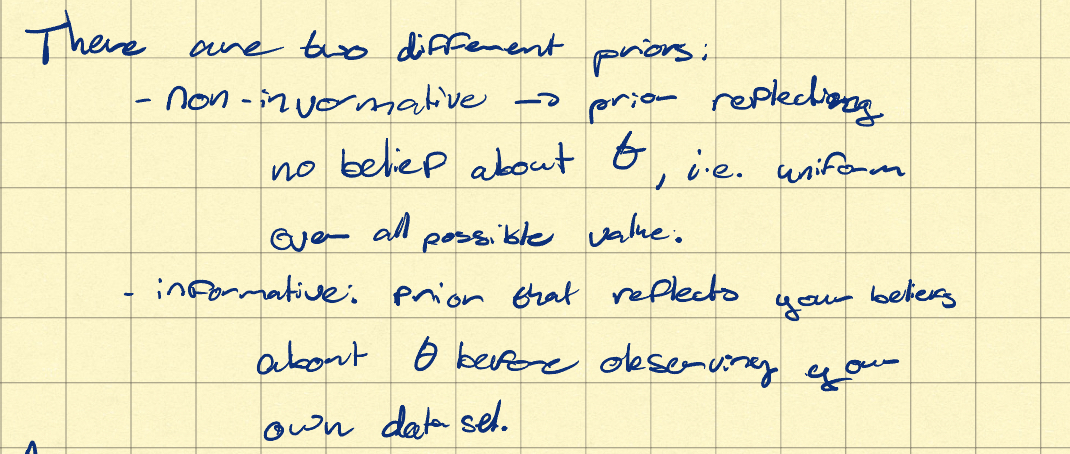 There are two different priors:
- non-informative → prior reflecting
no belief about θ, i.e. uniform
over all possible value.
- informative: prior that reflects your beliefs
about θ before observing your
own data set.